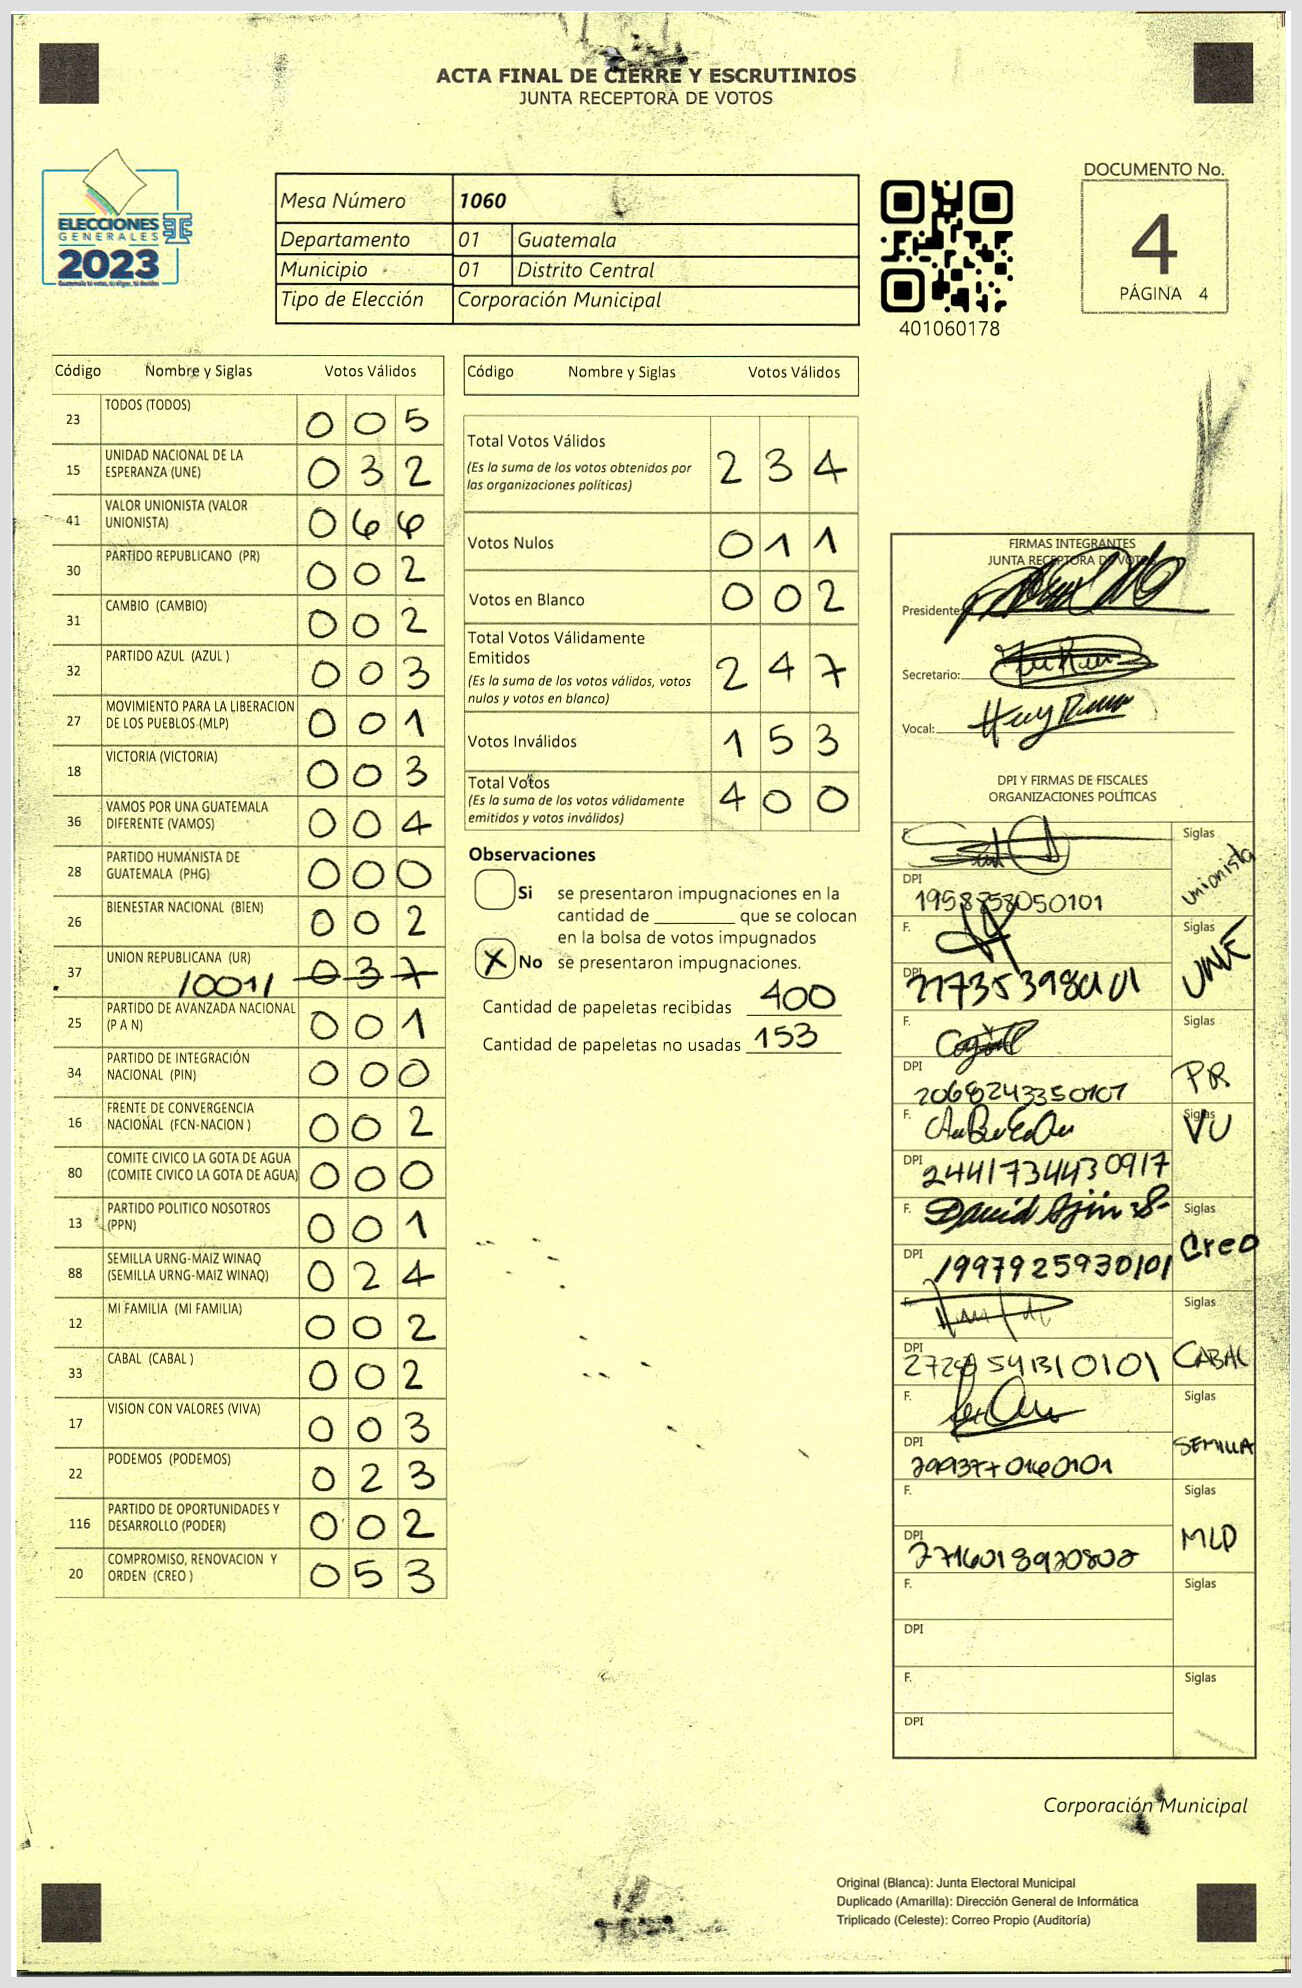 ACTA FINAL DE CIERRE Y ESCRUTINIOS
JUNTA RECEPTORA DE VOTOS
ELECCIONES
GENERALES
2023
Mesa Número 1060
Departamento 01 Guatemala
Municipio 01 Distrito Central
Tipo de Elección Corporación Municipal
401060178
DOCUMENTO No.
4
PÁGINA 4
Código Nombre y Siglas Votos Válidos
23 TODOS (TODOS) 0 0 5
15 UNIDAD NACIONAL DE LA
ESPERANZA (UNE) 0 3 2
41 VALOR UNIONISTA (VALOR
UNIONISTA) 0 6 6
30 PARTIDO REPUBLICANO (PR) 0 0 2
31 CAMBIO (CAMBIO) 0 0 2
32 PARTIDO AZUL (AZUL ) 0 0 3
27 MOVIMIENTO PARA LA LIBERACION
DE LOS PUEBLOS (MLP) 0 0 1
18 VICTORIA (VICTORIA) 0 0 3
36 VAMOS POR UNA GUATEMALA
DIFERENTE (VAMOS) 0 0 4
28 PARTIDO HUMANISTA DE
GUATEMALA (PHG) 0 0 0
26 BIENESTAR NACIONAL (BIEN) 0 0 2
37 UNION REPUBLICANA (UR)
/001/ 0 3 7
25 PARTIDO DE AVANZADA NACIONAL
(P A N) 0 0 1
34 PARTIDO DE INTEGRACIÓN
NACIONAL (PIN) 0 0 0
16 FRENTE DE CONVERGENCIA
NACIONAL (FCN-NACION ) 0 0 2
80 COMITE CIVICO LA GOTA DE AGUA
(COMITE CIVICO LA GOTA DE AGUA) 0 0 0
13 PARTIDO POLITICO NOSOTROS
(PPN) 0 0 1
88 SEMILLA URNG-MAIZ WINAQ
(SEMILLA URNG-MAIZ WINAQ) 0 2 4
12 MI FAMILIA (MI FAMILIA) 0 0 2
33 CABAL (CABAL ) 0 0 2
17 VISION CON VALORES (VIVA) 0 0 3
22 PODEMOS (PODEMOS) 0 2 3
116 PARTIDO DE OPORTUNIDADES Y
DESARROLLO (PODER) 0 0 2
20 COMPROMISO, RENOVACION Y
ORDEN (CREO ) 0 5 3
Código Nombre y Siglas Votos Válidos
Total Votos Válidos 2 3 4
(Es la suma de los votos obtenidos por
las organizaciones políticas)
Votos Nulos 0 1 1
Votos en Blanco 0 0 2
Total Votos Válidamente
Emitidos 2 4 7
(Es la suma de los votos válidos, votos
nulos y votos en blanco)
Votos Inválidos 1 5 3
Total Votos 4 0 0
(Es la suma de los votos válidamente
emitidos y votos inválidos)
Observaciones
Si se presentaron impugnaciones en la
cantidad de ________ que se colocan
en la bolsa de votos impugnados
X No se presentaron impugnaciones.
Cantidad de papeletas recibidas 400
Cantidad de papeletas no usadas 153
FIRMAS INTEGRANTES
JUNTA RECEPTORA DE VOTOS
Presidente:
Secretario:
Vocal:
DPI Y FIRMAS DE FISCALES
ORGANIZACIONES POLÍTICAS
F. Siglas
Unionista
DPI 1958858050101
F. Siglas
UNE
DPI
F. Siglas
PR
DPI 2068243350101
F. Siglas
VU
DPI 2441734430917
F. David Siglas
Creo
DPI 1997925930101
F. Siglas
CABAL
DPI
F. Siglas
SEMILLA
DPI
F. Siglas
MLP
DPI
F. Siglas
DPI
F. Siglas
DPI
Corporación Municipal
Original (Blanca): Junta Electoral Municipal
Duplicado (Amarilla): Dirección General de Informática
Triplicado (Celeste): Correo Propio (Auditoría)